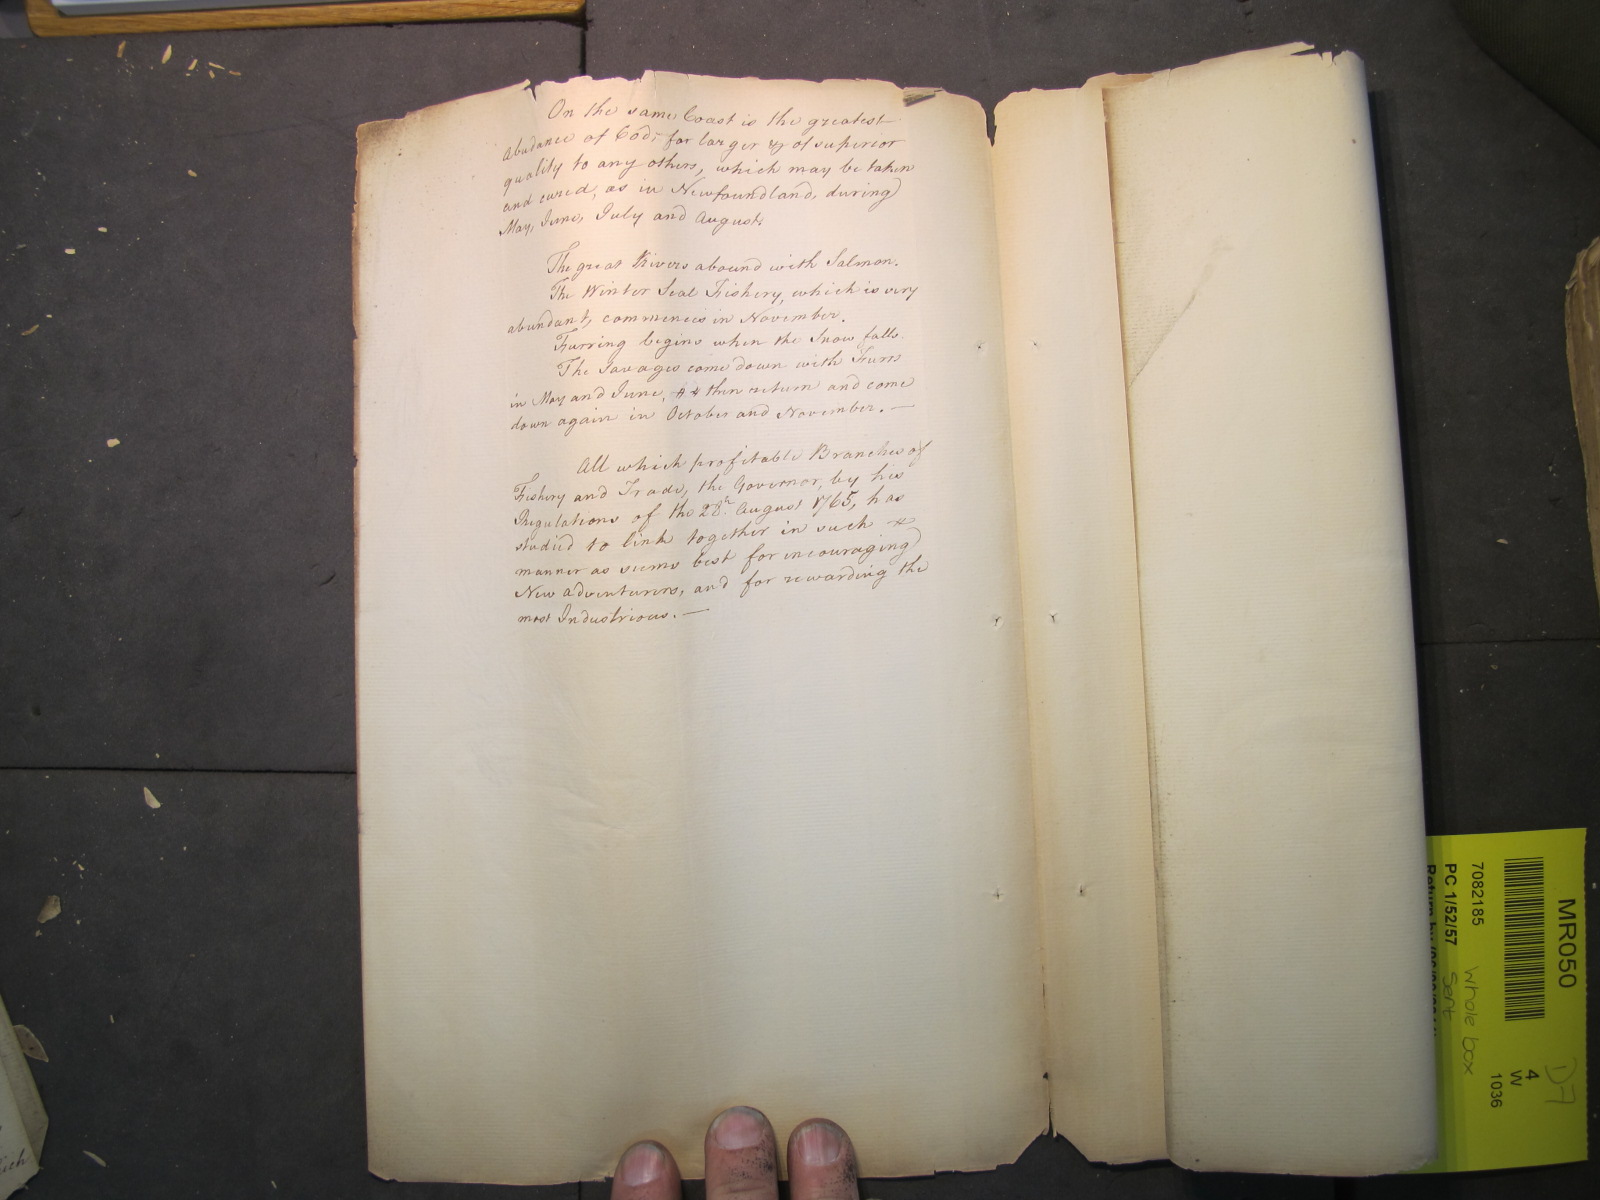 On the same Coast is the greatest
abudance of Cod, far larger & of superior
quality to any others, which may be taken
and cured, as in Newfoundland, during
May, June, July and August.
The great Rivers abound with Salmon.
The Winter Seal Fishery, which is very
abundant, commences in November.
Furring begins when the Snow falls.
The Savages come down with Furrs
in May and June, then return and come
down again in October and November. —
All which profitable Branches of
Fishery and Trade, the Governor, by his
Regulations of the 28th. August 1765, has
studied to link together in such
manner as seems best for incouraging
New adventurers, and for rewarding the
most Industrious. —
MR050
7082185
PC 1/52/57
Return by
Whole box
Sent
4
W
1036
D7